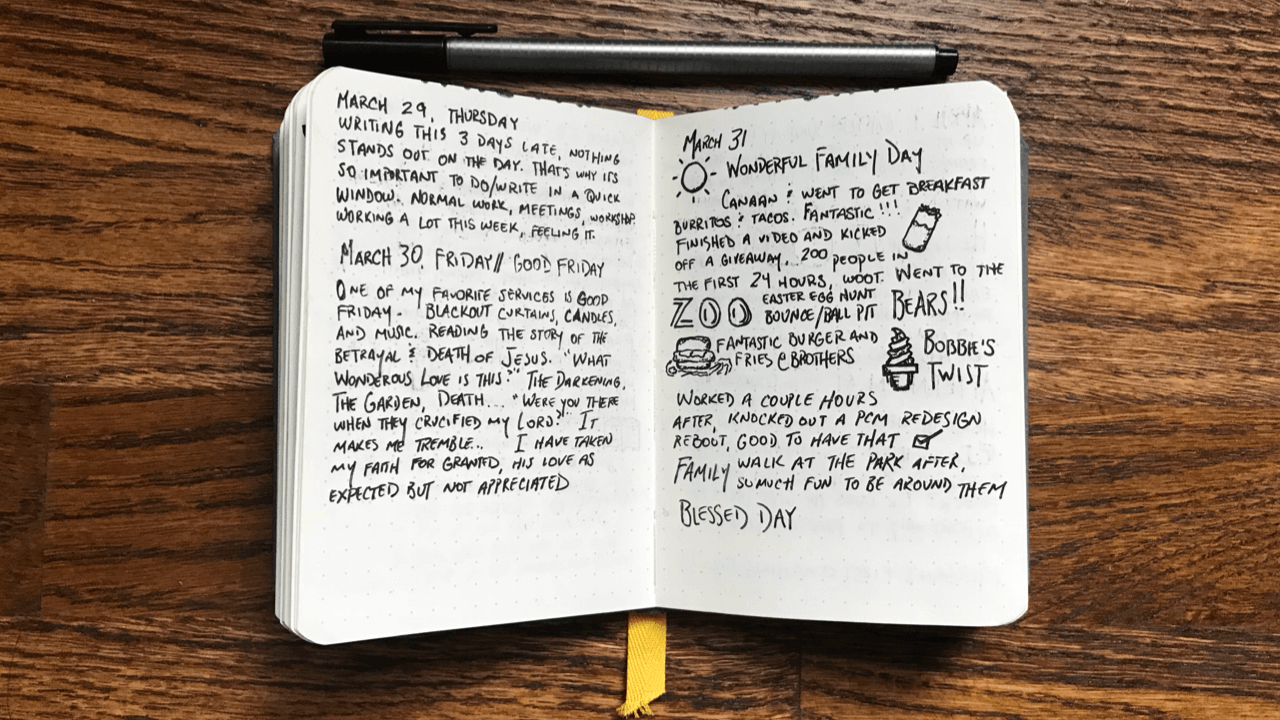 MARCH 29, THURSDAY
WRITING THIS 3 DAYS LATE, NOTHING
STANDS OUT ON THE DAY. THAT'S WHY ITS
SO IMPORTANT TO DO/WRITE IN A QUICK
WINDOW. NORMAL WORK, MEETINGS, WORKSHOP.
WORKING A LOT THIS WEEK, FEELING IT.
MARCH 30, FRIDAY// GOOD FRIDAY
ONE OF MY FAVORITE SERVICES IS GOOD
FRIDAY. BLACKOUT CURTAINS, CANDLES,
AND MUSIC. READING THE STORY OF THE
BETRAYAL & DEATH OF JESUS. "WHAT
WONDEROUS LOVE IS THIS?" THE DARKENING,
THE GARDEN, DEATH... "WERE YOU THERE
WHEN THEY CRUCIFIED MY LORD?" IT
MAKES ME TREMBLE... I HAVE TAKEN
MY FAITH FOR GRANTED, HIS LOVE AS
EXPECTED BUT NOT APPRECIATED
MARCH 31
WONDERFUL FAMILY DAY
CANAAN & I WENT TO GET BREAKFAST
BURRITOS & TACOS. FANTASTIC!!!
FINISHED A VIDEO AND KICKED
OFF A GIVEAWAY... 200 PEOPLE IN
THE FIRST 24 HOURS, WOOT. WENT TO THE
ZOO EASTER EGG HUNT BEARS!!
BOUNCE/BALL PIT
FANTASTIC BURGER AND
FRIES @ BROTHERS
BOBBIE'S
TWIST
WORKED A COUPLE HOURS
AFTER, KNOCKED OUT A PCM REDESIGN
REBOOT, GOOD TO HAVE THAT
FAMILY WALK AT THE PARK AFTER,
SO MUCH FUN TO BE AROUND THEM
BLESSED DAY